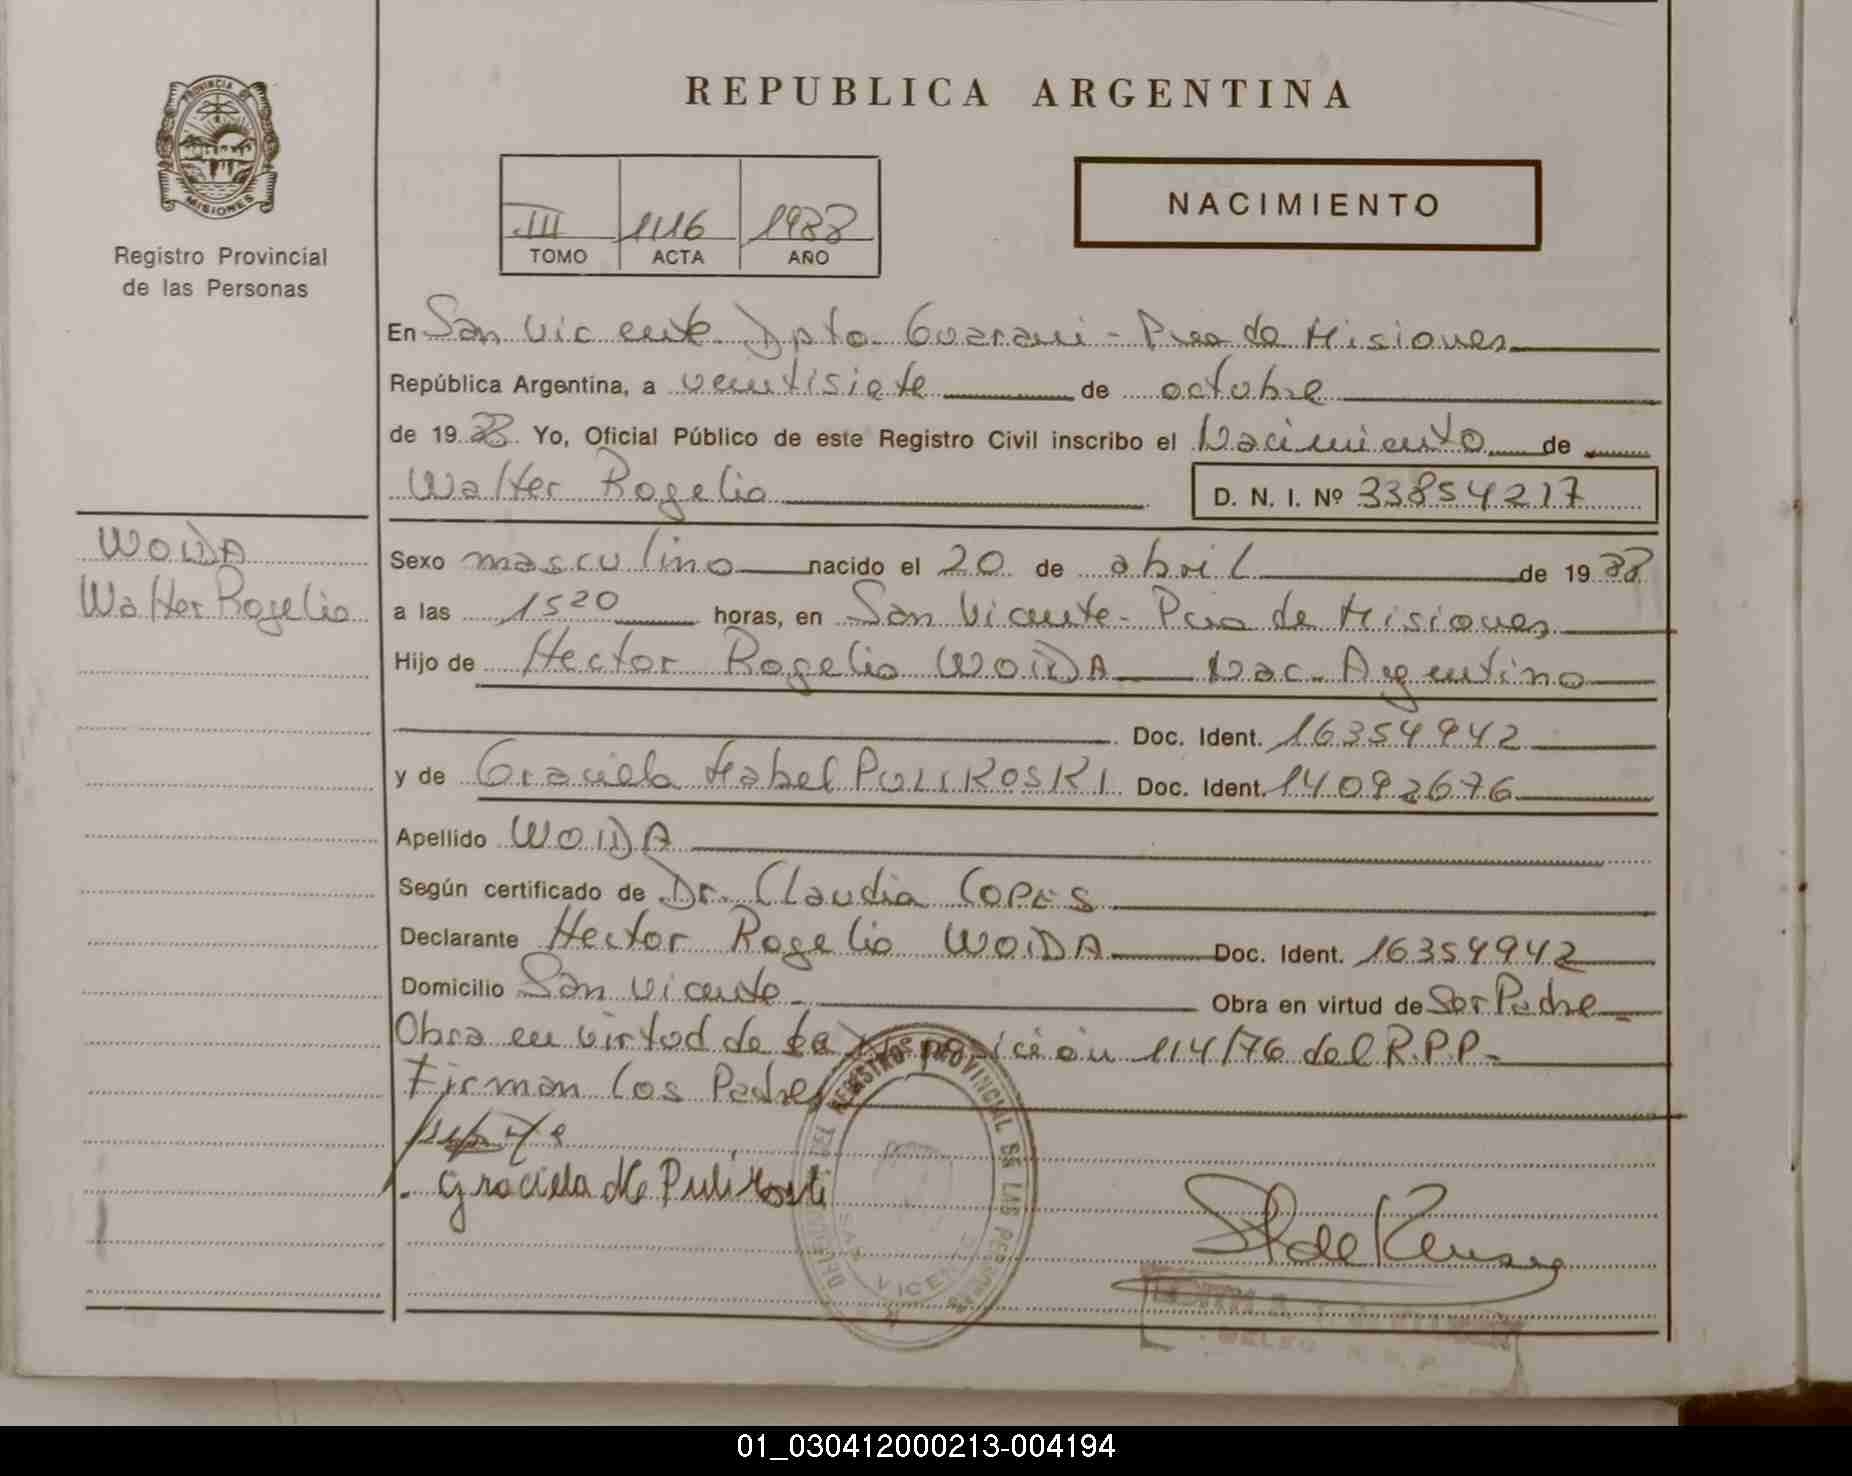 REPUBLICA ARGENTINA
PROVINCIA DE
MISIONES
Registro Provincial
de las Personas
III 1116 1988
TOMO ACTA AÑO
NACIMIENTO
En San Vicente Dpto. Guarani - Pcia de Misiones
República Argentina, a veintisiete de octubre
de 1988 Yo, Oficial Público de este Registro Civil inscribo el Nacimiento de
Walter Rogelio D. N. I. Nº 33854217
WOIDA
Walter Rogelio
Sexo masculino nacido el 20 de abril de 1988
a las 1520 horas, en San Vicente - Pcia de Misiones
Hijo de Hector Rogelio WOIDA Nac. Argentino
Doc. Ident. 16354942
y de Graciela Mabel PULIKOSKI Doc. Ident. 14092676
Apellido WOIDA
Según certificado de Dr. Claudia COPES
Declarante Hector Rogelio WOIDA Doc. Ident. 16354942
Domicilio San Vicente Obra en virtud de Ser Padre
Obra en virtud de la 114/76 del R.P.P.
Firman los Padres
Graciela M Pulikoski
REGISTRO PROVINCIAL DE LAS PERSONAS
SAN VICENTE
01_030412000213-004194